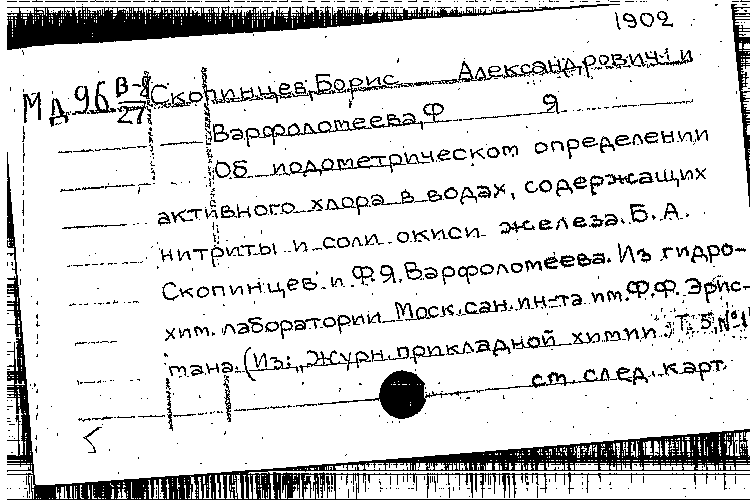 1902
МД 96 В-8/27 Скопинцев, Борис Александрович и
Варфоломеева, Ф Я
Об иодометрическом определении
активного хлора в водах, содержащих
нитриты и соли окиси железа. Б. А.
Скопинцев и Ф. Я. Варфоломеева. Из гидро-
хим. лаборатории Моск. сан. ин-та им. Ф. Ф. Эрис-
мана. (Из: „Журн. прикладной химии Т. 5, №1
см. след. карт.